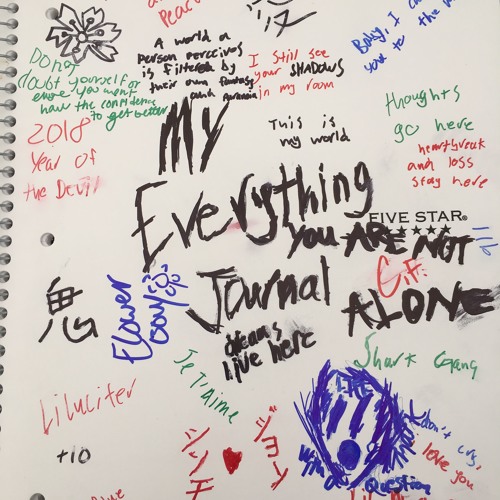 Dont
doubt yourself or
else you wont
have the confidence
to get better
A world a
person percieves
is filtered by
their own fantasy
and paranoia
I still see
your SHADOWS
in my room
Baby, I
you to the
thoughts
go here
heartbreak
and loss
stay here
2018
Year of
the Devil
This is
my world
My
Everything
Journal
FIVE STAR®
You ARE NOT
ALONE
G.F.
鬼
Flower
Boy
dreams
live here
Shark Gang
Je T'aime
Lilucifer
+10
LIFE
with a
Question
don't cry,
love you